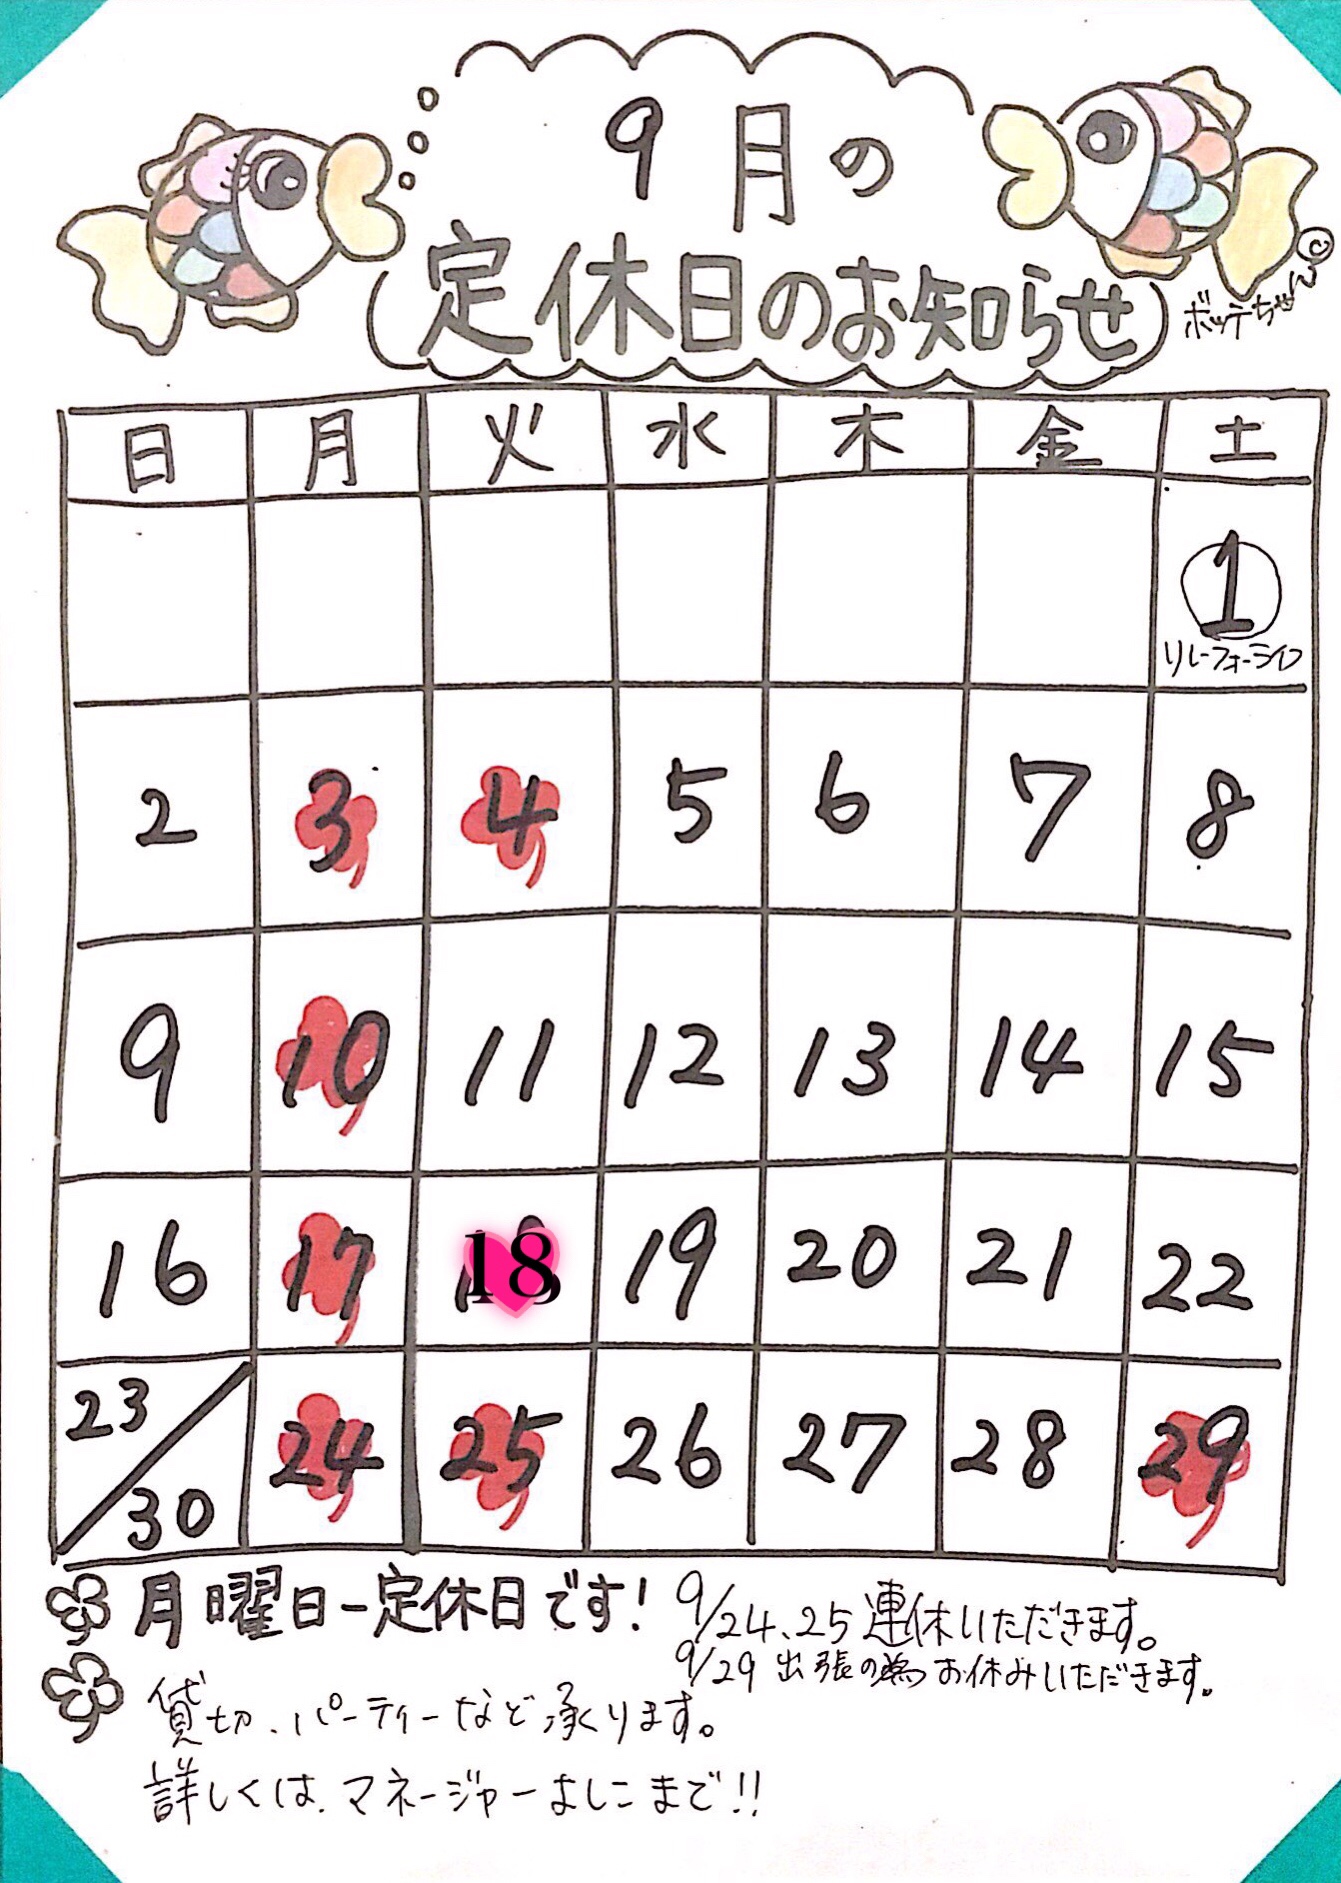 9月の
定休日のお知らせ
©
ボッテちゃん
日 月 火 水 木 金 土
1
リレーフォーライフ
2 3 4 5 6 7 8
9 10 11 12 13 14 15
16 17 18 19 20 21 22
23/30 24 25 26 27 28 29
月曜日-定休日です!
9/24、25 連休いただきます。
9/29 出張の為お休みいただきます。
貸切、パーティーなど承ります。
詳しくは、マネージャーよしこまで!!